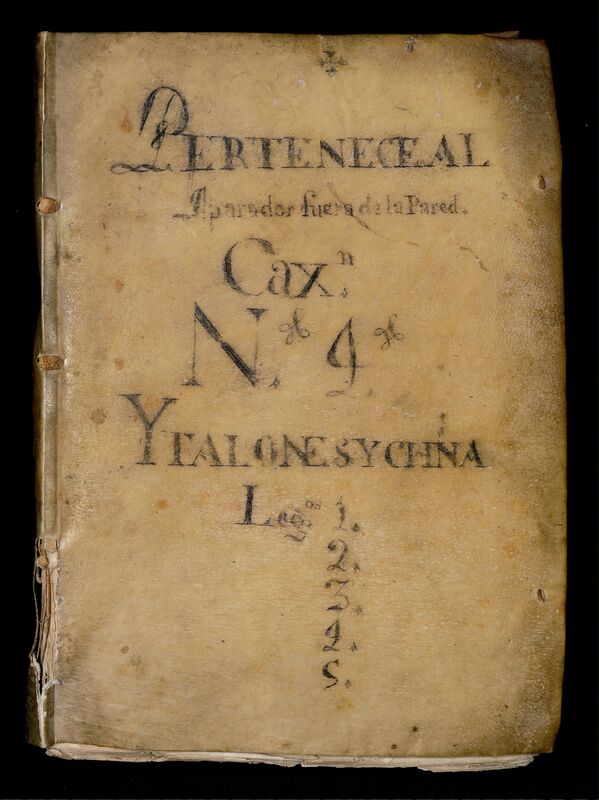 PERTENECE AL
Aparador fuera de la Pared.
Cax.n
N.
YTALONES Y CHINA
Leg.os 1.
2.
3.
4.
5.